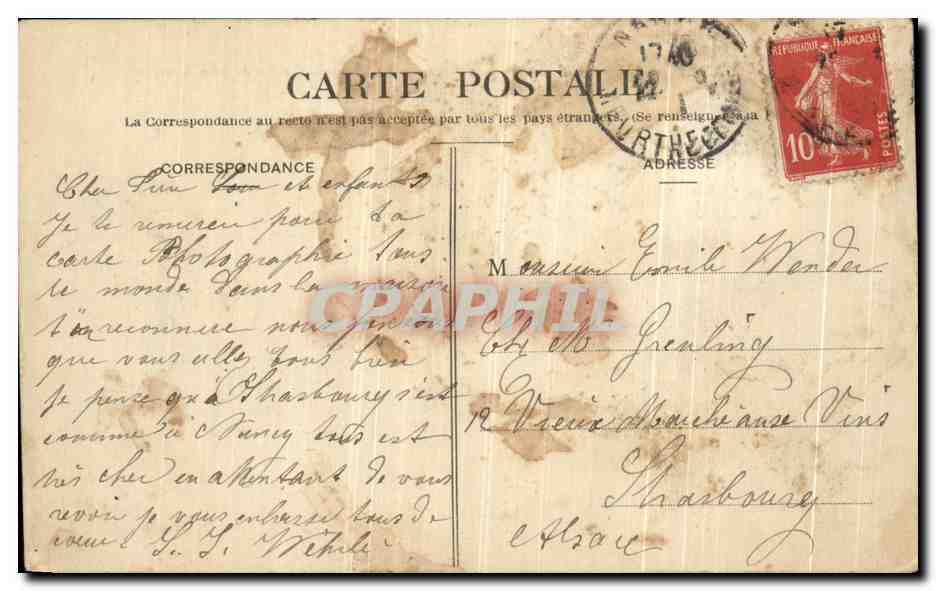 CARTE POSTALE
La Correspondance au recto n'est pas acceptée par tous les pays étrangers. (Se renseigner à la
CORRESPONDANCE
ADRESSE
RÉPUBLIQUE FRANÇAISE
10
POSTES
Cher et enfants
Je te remercie pour ta
carte Photographie tous
le monde dans la maison
reconnere nous
que vous allez tous bien
je pense qu'a Strasbourg s'est
comme à Nancy tous est
très cher en attentant de vous
revoir je vous enbrasse tous de
coeur
Monsieur Emile Wender
Chez M Greuling
12 Vieux Marché aux Vins
Strasbourg
Alsace
CPAPHIL